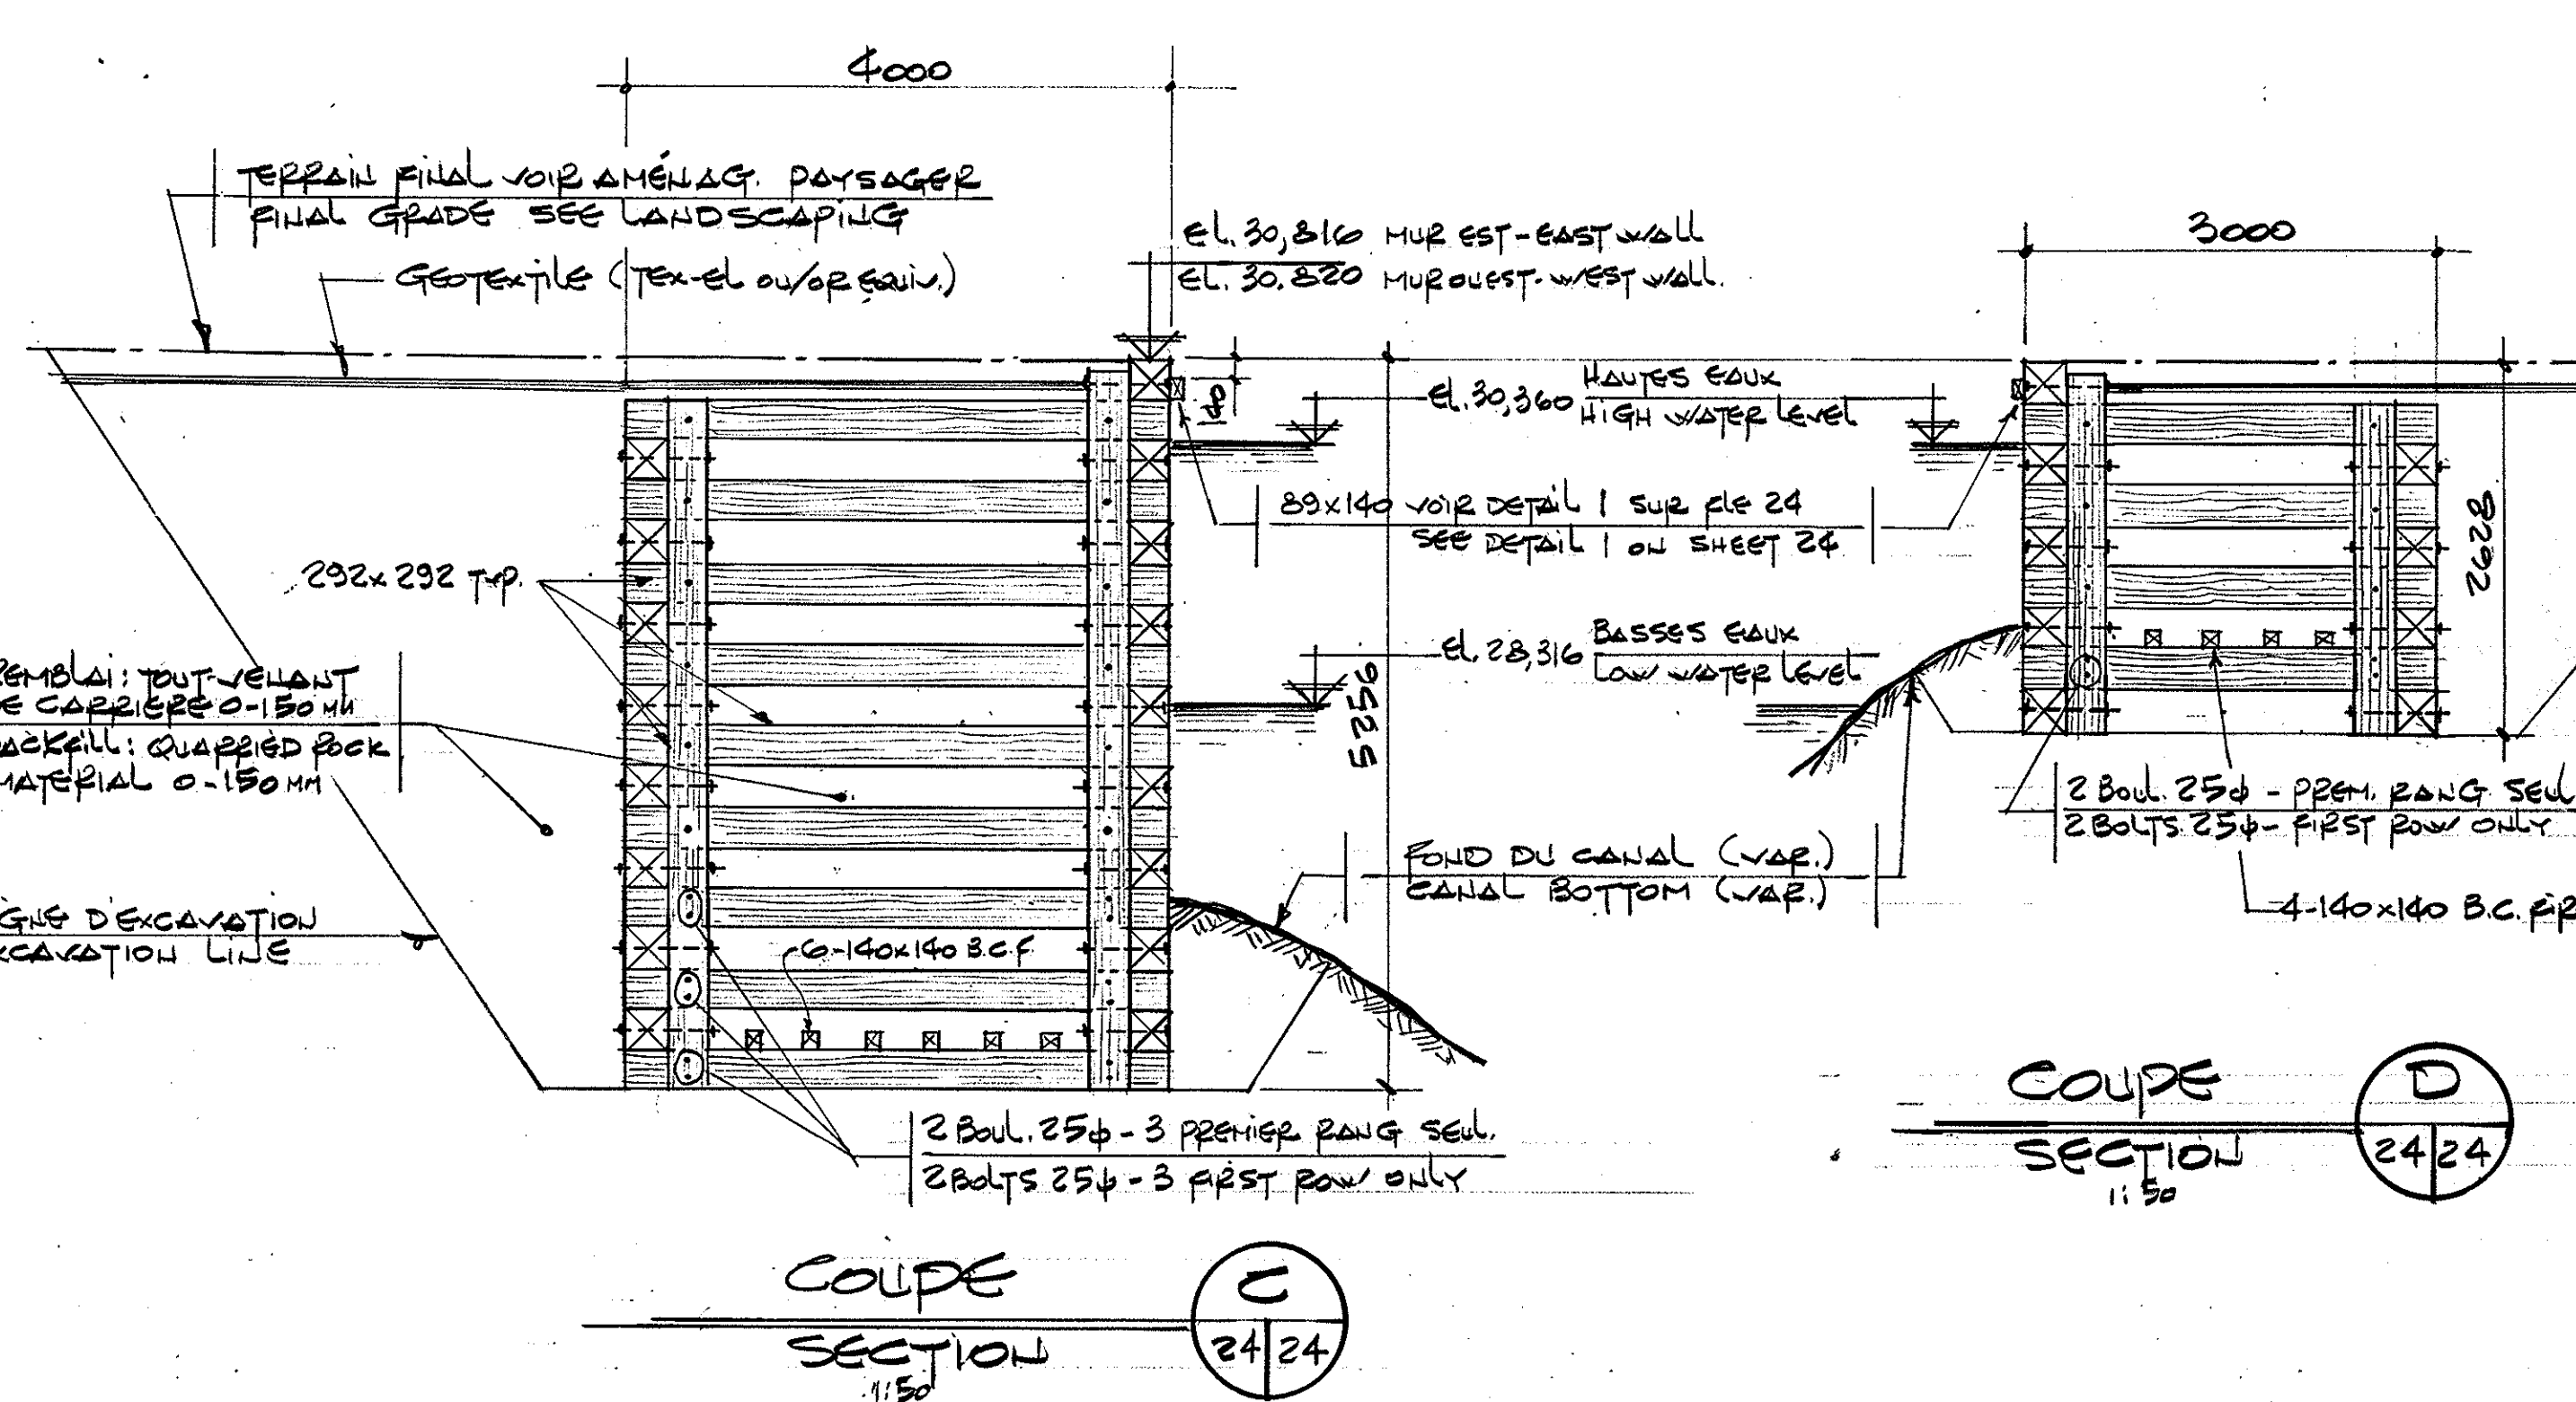 4000
TERRAIN FINAL VOIR AMÉNAG. PAYSAGER
FINAL GRADE SEE LANDSCAPING
GEOTEXTILE (TEX-EL OU/OR EQUIV.)
EL. 30,816 MUR EST-EAST WALL
EL. 30.820 MUR OUEST-WEST WALL.
3000
140
EL. 30,360 HAUTES EAUX
HIGH WATER LEVEL
89x140 VOIR DETAIL 1 SUR FLE 24
SEE DETAIL 1 ON SHEET 24
2628
292x292 TYP.
EL. 28,316 BASSES EAUX
LOW WATER LEVEL
5256
EMBLAI: TOUT-VENANT
E CARRIERE 0-150 MM
ACKFILL: QUARRIED ROCK
MATERIAL 0-150 MM
2 BOUL. 25ϕ - PREM. RANG SEUL
2 BOLTS 25ϕ - FIRST ROW ONLY
FOND DU CANAL (VAR.)
CANAL BOTTOM (VAR.)
4-140x140 B.C. FIR
GNE D'EXCAVATION
XCAVATION LINE
6-140x140 B.C.F
2 BOUL. 25ϕ - 3 PREMIER RANG SEUL.
2 BOLTS 25ϕ - 3 FIRST ROW ONLY
COUPE
SECTION
1:50
D
24 24
COUPE
SECTION
1:50
C
24 24